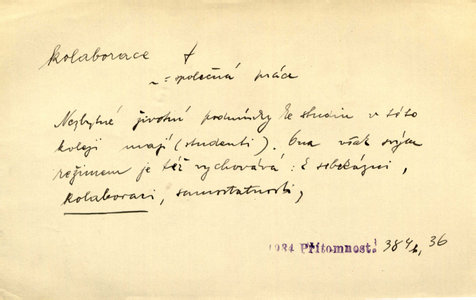 kolaborace f
~ = společná práce
Nezbytné životní podmínky ke studiu v této
koleji mají (studenti). Ona však svým
režimem je též vychovává: k sebekázni,
kolaboraci, samostatnosti,
1934 Přítomnost 384, 36